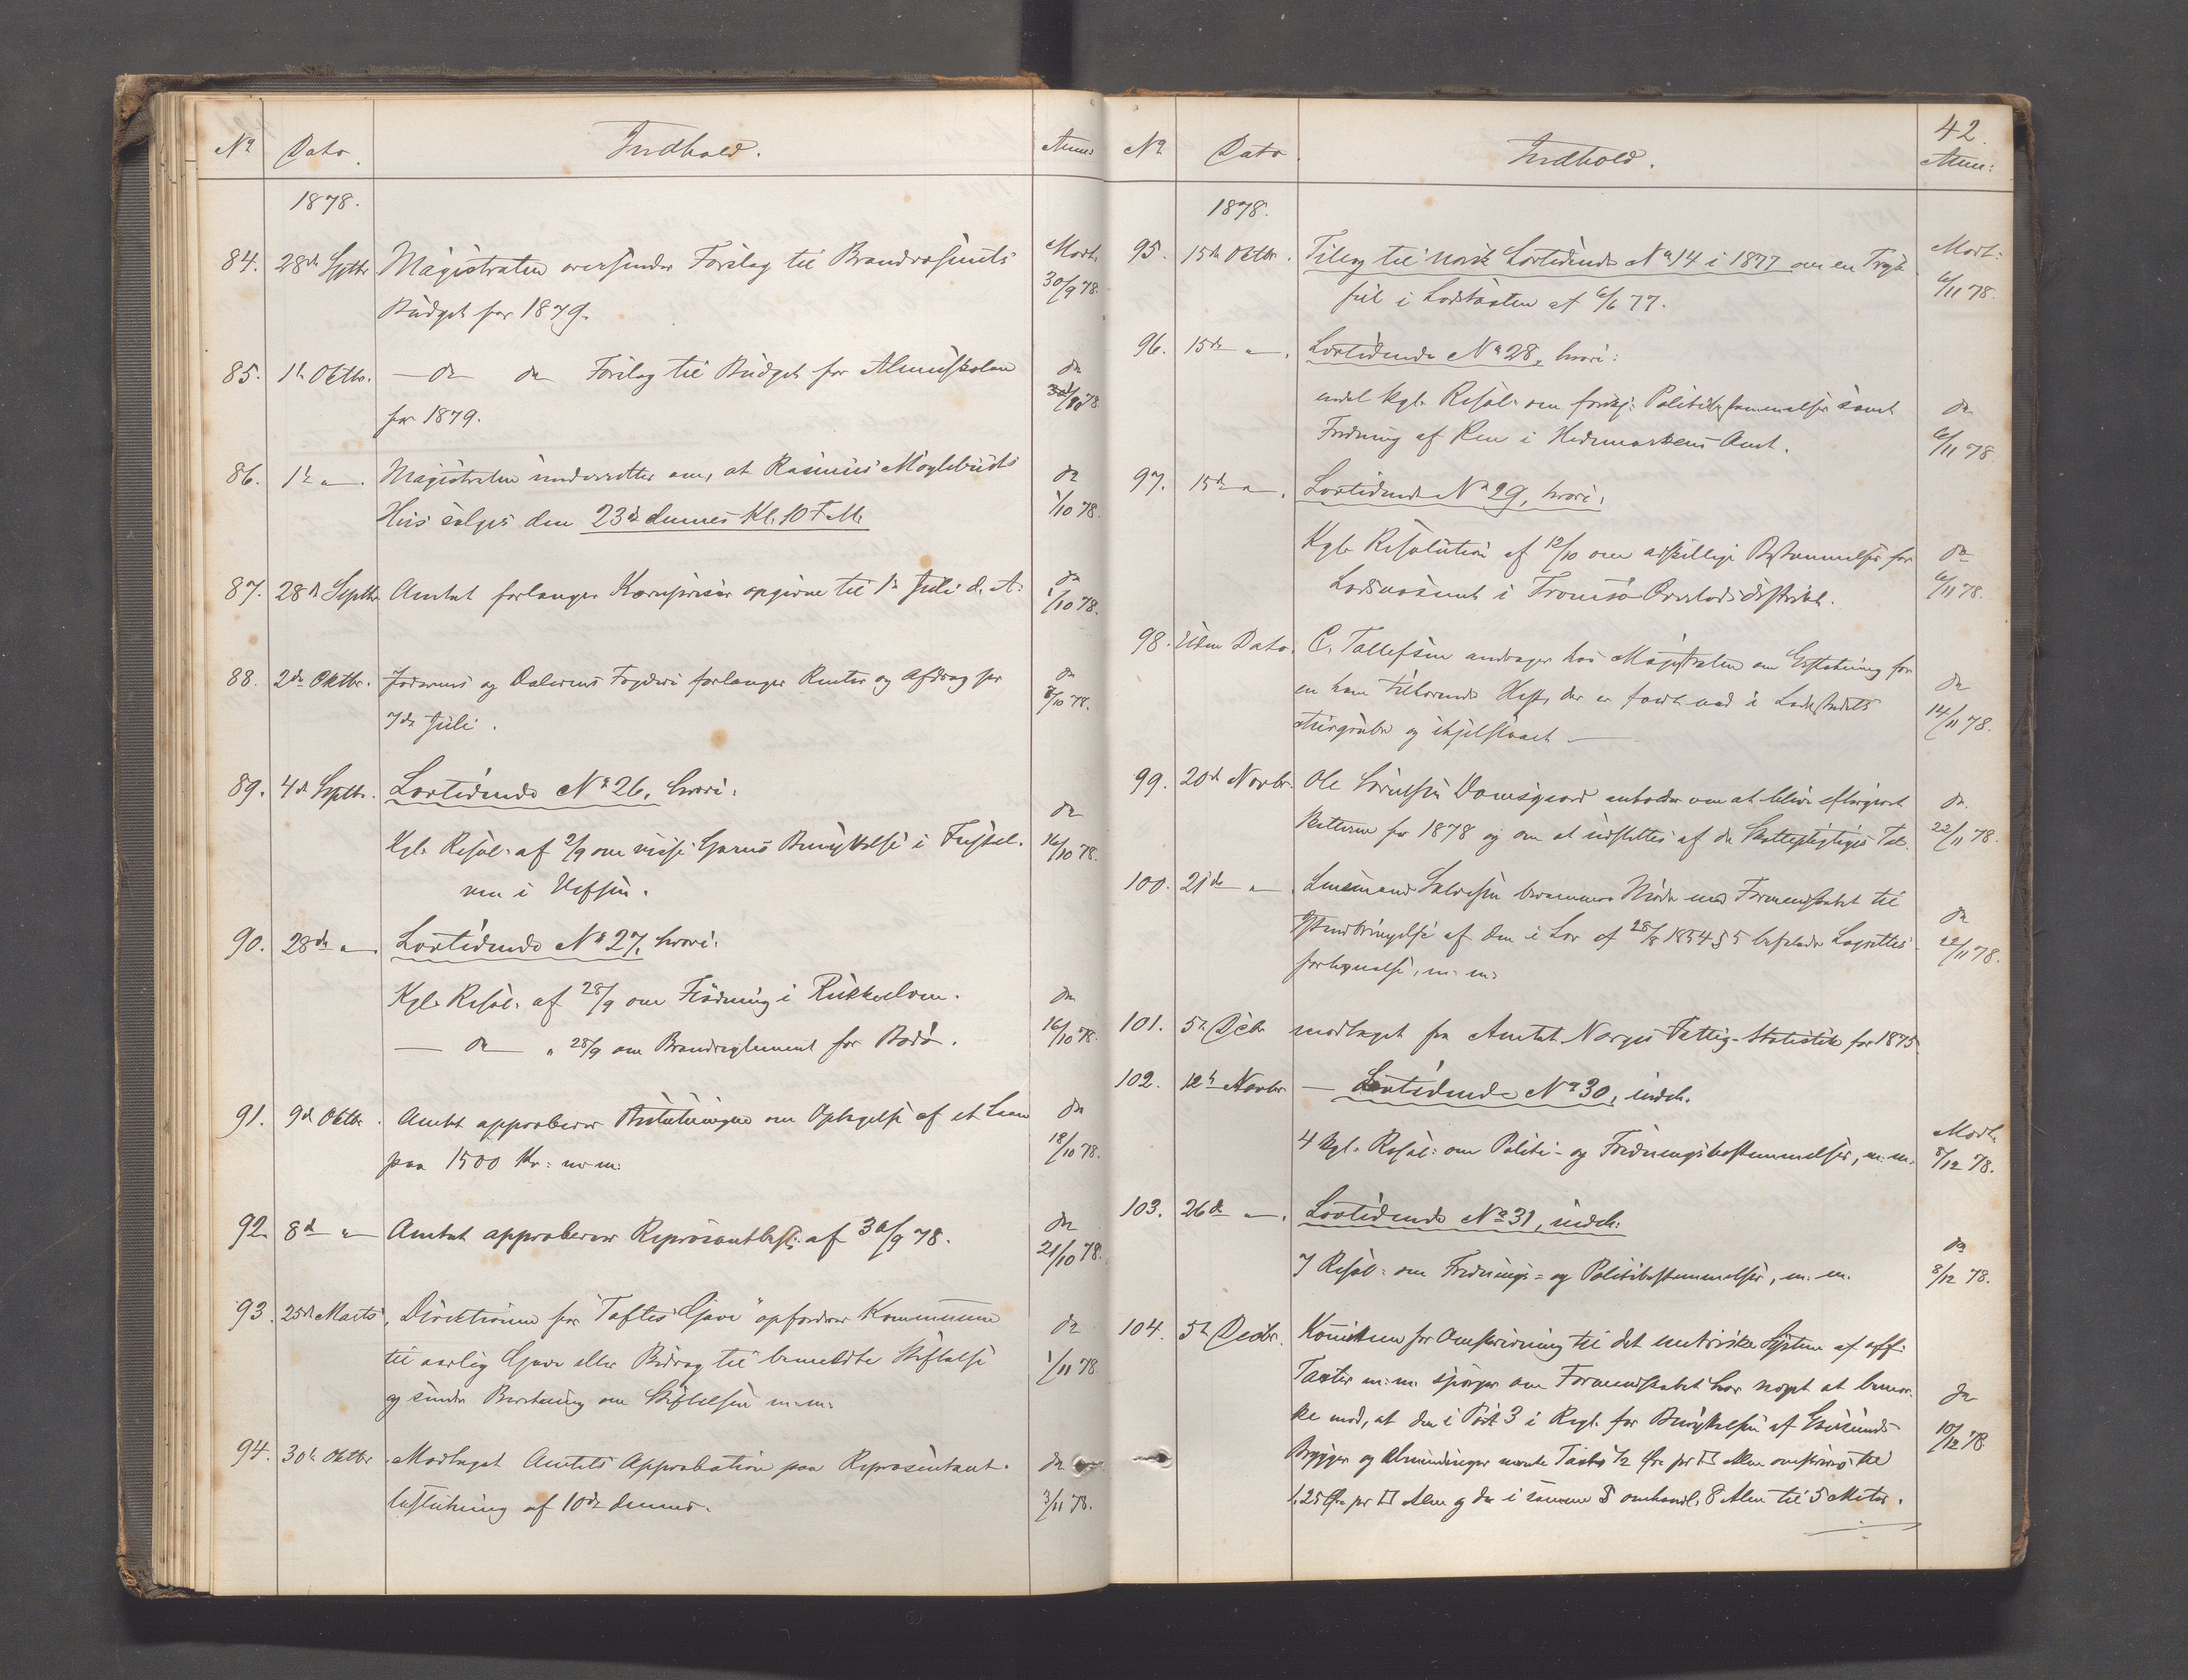 No Dato. Indhold. Anm:
1878.
84. 28de Septbr Magistraten oversender Forslag til Brandvæsenets Modt.
Budget for 1879. 30/9 78.
85. 1te Oktbr. — do do Forslag til Budget for Almueskolen do
for 1879. /10 78
86. 1te " Magistraten underretter om, at Rasmus Møglebusts do
Hus sælges den 23de dennes Kl. 10 F.M. 1/10 78.
87. 28de Septbr Amtet forlanger Kornpriser opgivne til 1te Juli d. A. do 1/10 78.
88. 2de Oktbr. Jæderens og Dalernes Fogderi forlanger Renter og Afdrag pr do
7de Juli. /10 78.
89. 4de Septbr. Lovtidende No 26, hvori:
do
Kgl. Resol. af 2/9 om visse Garns Benyttelse i Fustel- 16/10 78.
ven i Vefsen.
90. 28de " Lovtidende No 27, hvori:
Kgl. Resol. af 28/9 om Flødning i Rukkedøen. do
— do — " 28/9 om Brandreglement for Bodø. 16/10 78.
91. 9de Oktbr. Amtet approberer Beslutningen om Optagelse af et Laan do
paa 1500 Kr. m. m. 18/10 78.
92. 8de " Amtet approberer Repræsentbesl. af 30/9 78. do
21/10 78.
93. 25de Marts. Direktionen for "Toftes Gave" opfordrer Kommunen do
til aarlig Gave eller Bidrag til bemeldte Stiftelse 1/11 78.
og sender Beretning om Stiftelsen m. m.
94. 30te Oktbr. Modtaget Amtets Approbation paa Repræsentant- do
beslutning af 10de dennes. 3/11 78.
42.
No Dato. Indhold. Anm:
1878.
95. 15de Oktbr. Tillæg til norsk Lovtidende No 14 i 1877 om en Tryk- Modt:
feil i Lodstaxten af 6/6 77. 6/11 78.
96. 15de ". Lovtidende No 28, hvori:
endel Kgl. Resol. om forskj: Politibestemmelser samt do
Fredning af Ren i Hedemarkens Amt. 6/11 78
97. 15de ". Lovtidende No 29, hvori:
Kgl. Resolution af 12/10 om adskillige Bestemmelser for do
Lodsvæsenet i Tromsø Overlodsdistrikt. 6/11 78.
98. Uden Dato. C. Tollefsen andrager hos Magistraten om Erstatning for
en ham tilhørende Hest, der er faldt ned i Ladestedets do
Aurgrube og ihjelslaaet — 14/11 78.
99. 20de Novbr. Ole Sørensen Damsgaard anholder om at blive eftergivet do.
Skatterne for 1878 og om at udslettes af de Skattepligtiges Tal. 22/11 78.
100. 21de ". Lensmand Salvesen berammer Møde med Formandskabet til
Istandbringelse af den i Lov af 28/8 1854 § 5 befalede Lagrettes- do
fortegnelse, m. m. 22/11 78.
101. 5te Debr modtaget fra Amtet Norges Fattig-Statistik for 1875.
102. 12te Novbr — Lovtidende No 30, indeh.
Modt.
4 kgl. Resol: om Politi- og Fredningsbestemmelser, m. m. 8/12 78.
103. 26de ". Lovtidende No 31, indeh:
7 Resol: om Frednings- og Politibestemmelser, m. m. do 8/12 78.
104. 5te Decbr. Komiteen for Omskrivning til det metriske System af off.
Taxter m. m. spørger om Formandskabet har noget at bemær- do
ke mod, at den i Post 3 i Regl. for Benyttelsen af Egersunds 10/12 78
Brygger og Almindinger nævnte Taxt ½ Øre pr □ Alen omskrives til
1,25 Øre pr □ Alen og de i samme § omhandl. 8 Alen til 5 Meter.